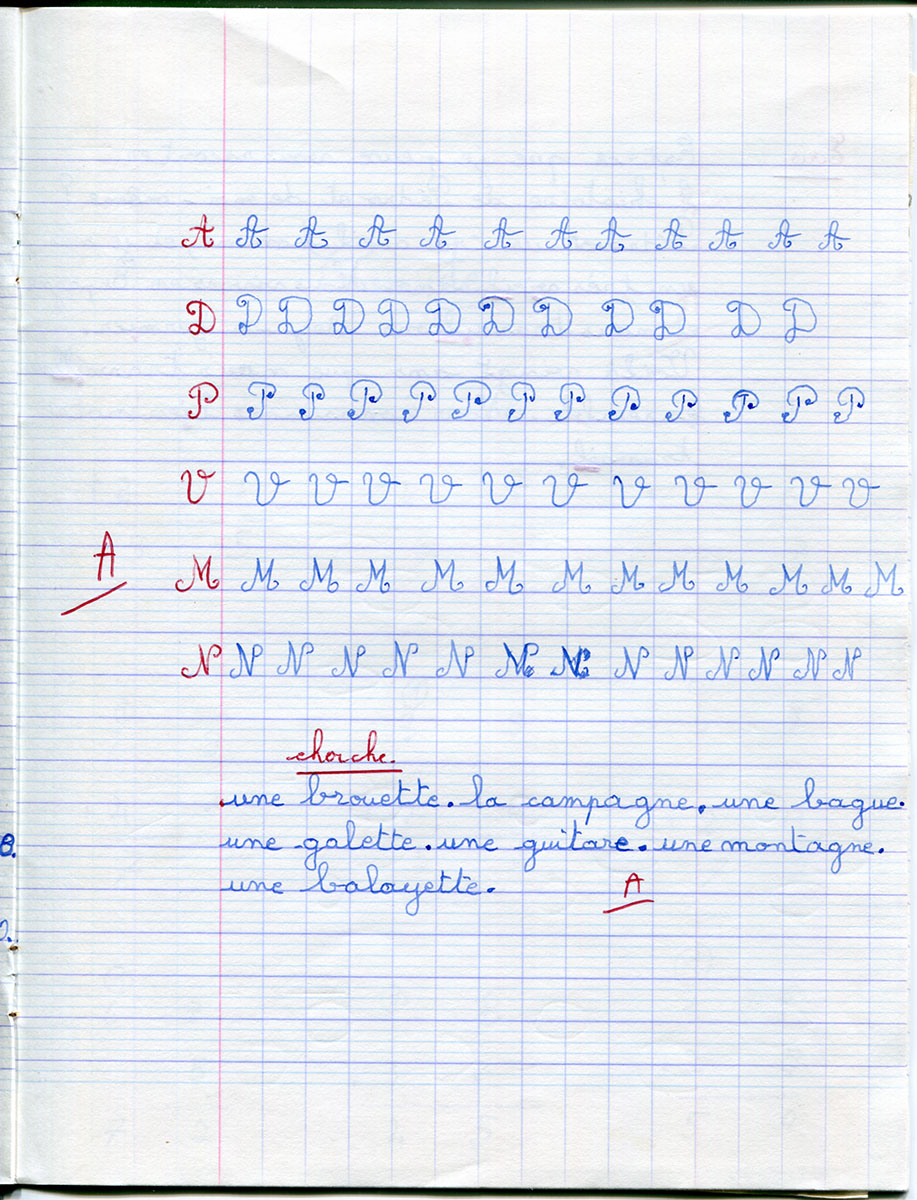 A A A A A A A A A A A A
D D D D D D D D D D D D
P P P P P P P P P P P P P
V V V V V V V V V V V V
A
M M M M M M M M M M M M M
N N N N N N N N N N N N N N
cherche.
une brouette. la campagne. une bague.
une galette. une guitare. une montagne.
une balayette.
A